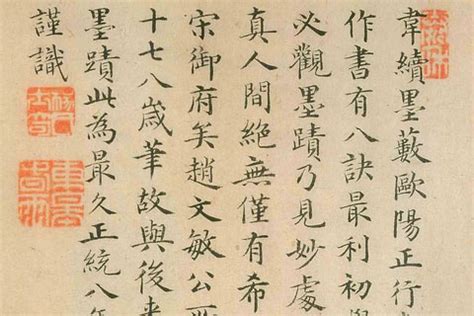 韋續墨藪歐陽正行
作書有八訣最利初
必觀墨蹟乃見妙處
真人間絶無僅有希
宋御府矣趙文敏公
十七八歲筆故與後来
墨蹟此為最久正統八年
謹識